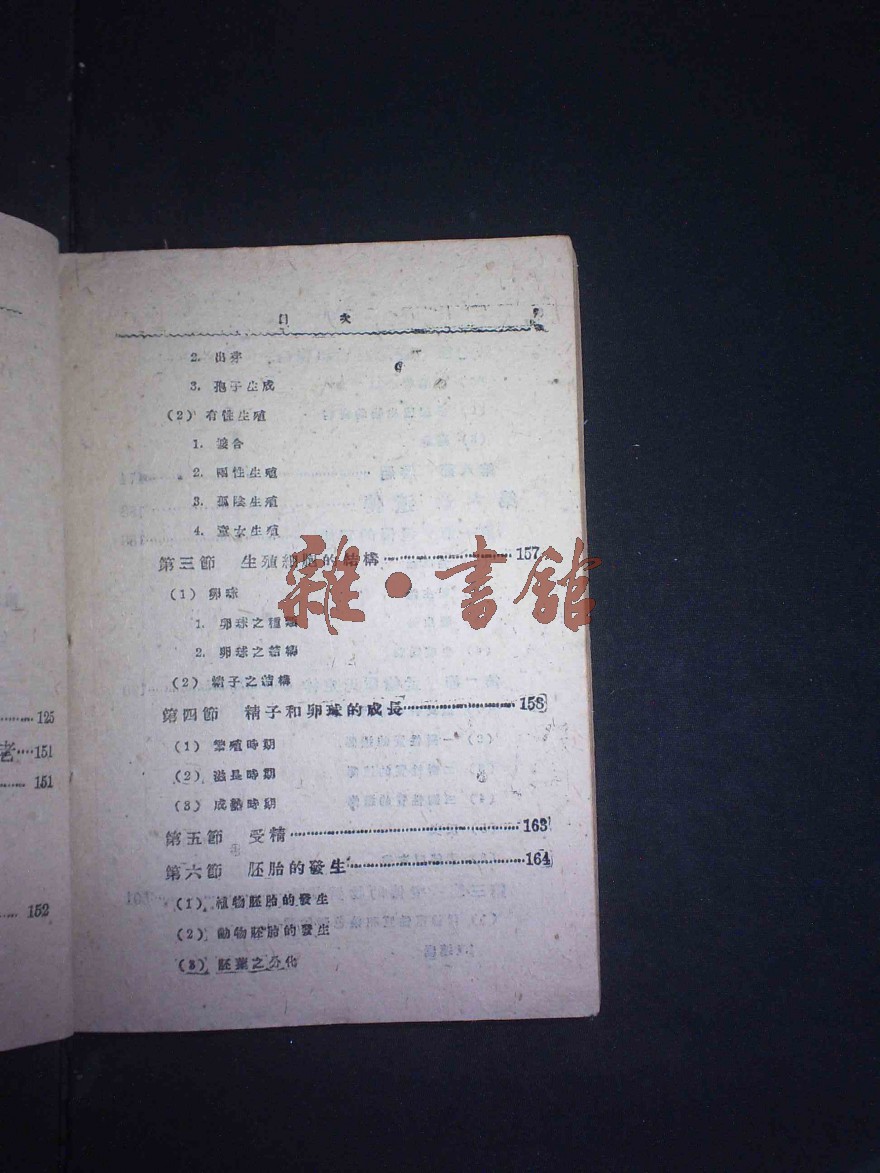 125
老…151
151
152
目 次
2. 出芽
3. 孢子生成
(2) 有性生殖
1. 接合
2. 兩性生殖
3. 孤陰生殖
4. 童女生殖
第三節 生殖細胞的結構…157
(1) 卵球
1. 卵球之種類
2. 卵球之結構
(2) 精子之結構
第四節 精子和卵球的成長…158
(1) 繁殖時期
(2) 滋長時期
(3) 成熟時期
第五節 受精…163
第六節 胚胎的發生…164
(1) 植物胚胎的發生
(2) 動物胚胎的發生
(3) 胚葉之分化
雜·書館